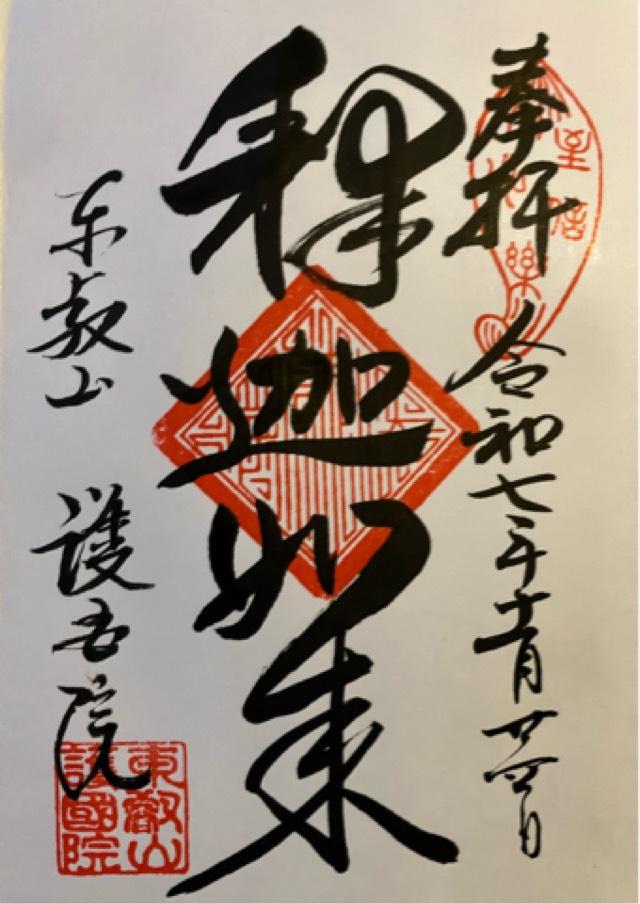 奉拝
令和七年十一月廿四日
釈迦如来
東叡山 護国院
東叡山
護國院